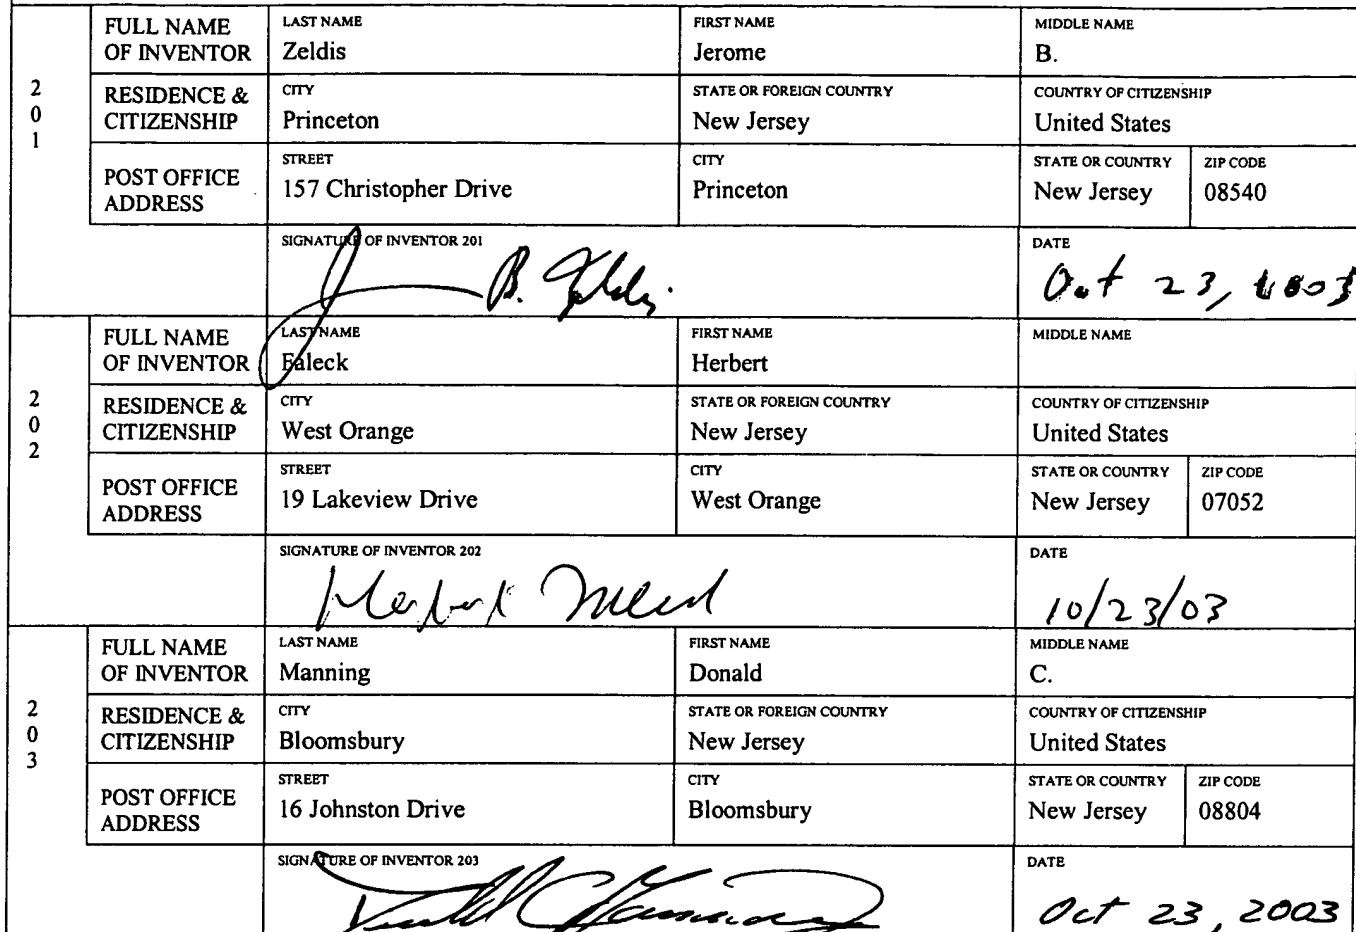 FULL NAME OF INVENTOR
LAST NAME
Zeldis
FIRST NAME
Jerome
MIDDLE NAME
B.
201
RESIDENCE & CITIZENSHIP
CITY
Princeton
STATE OR FOREIGN COUNTRY
New Jersey
COUNTRY OF CITIZENSHIP
United States
POST OFFICE ADDRESS
STREET
157 Christopher Drive
CITY
Princeton
STATE OR COUNTRY
New Jersey
ZIP CODE
08540
SIGNATURE OF INVENTOR 201
J B. Zeldis
DATE
Oct 23, 2003
FULL NAME OF INVENTOR
LAST NAME
Faleck
FIRST NAME
Herbert
MIDDLE NAME
202
RESIDENCE & CITIZENSHIP
CITY
West Orange
STATE OR FOREIGN COUNTRY
New Jersey
COUNTRY OF CITIZENSHIP
United States
POST OFFICE ADDRESS
STREET
19 Lakeview Drive
CITY
West Orange
STATE OR COUNTRY
New Jersey
ZIP CODE
07052
SIGNATURE OF INVENTOR 202
Herbert
DATE
10/23/03
FULL NAME OF INVENTOR
LAST NAME
Manning
FIRST NAME
Donald
MIDDLE NAME
C.
203
RESIDENCE & CITIZENSHIP
CITY
Bloomsbury
STATE OR FOREIGN COUNTRY
New Jersey
COUNTRY OF CITIZENSHIP
United States
POST OFFICE ADDRESS
STREET
16 Johnston Drive
CITY
Bloomsbury
STATE OR COUNTRY
New Jersey
ZIP CODE
08804
SIGNATURE OF INVENTOR 203
DATE
Oct 23, 2003